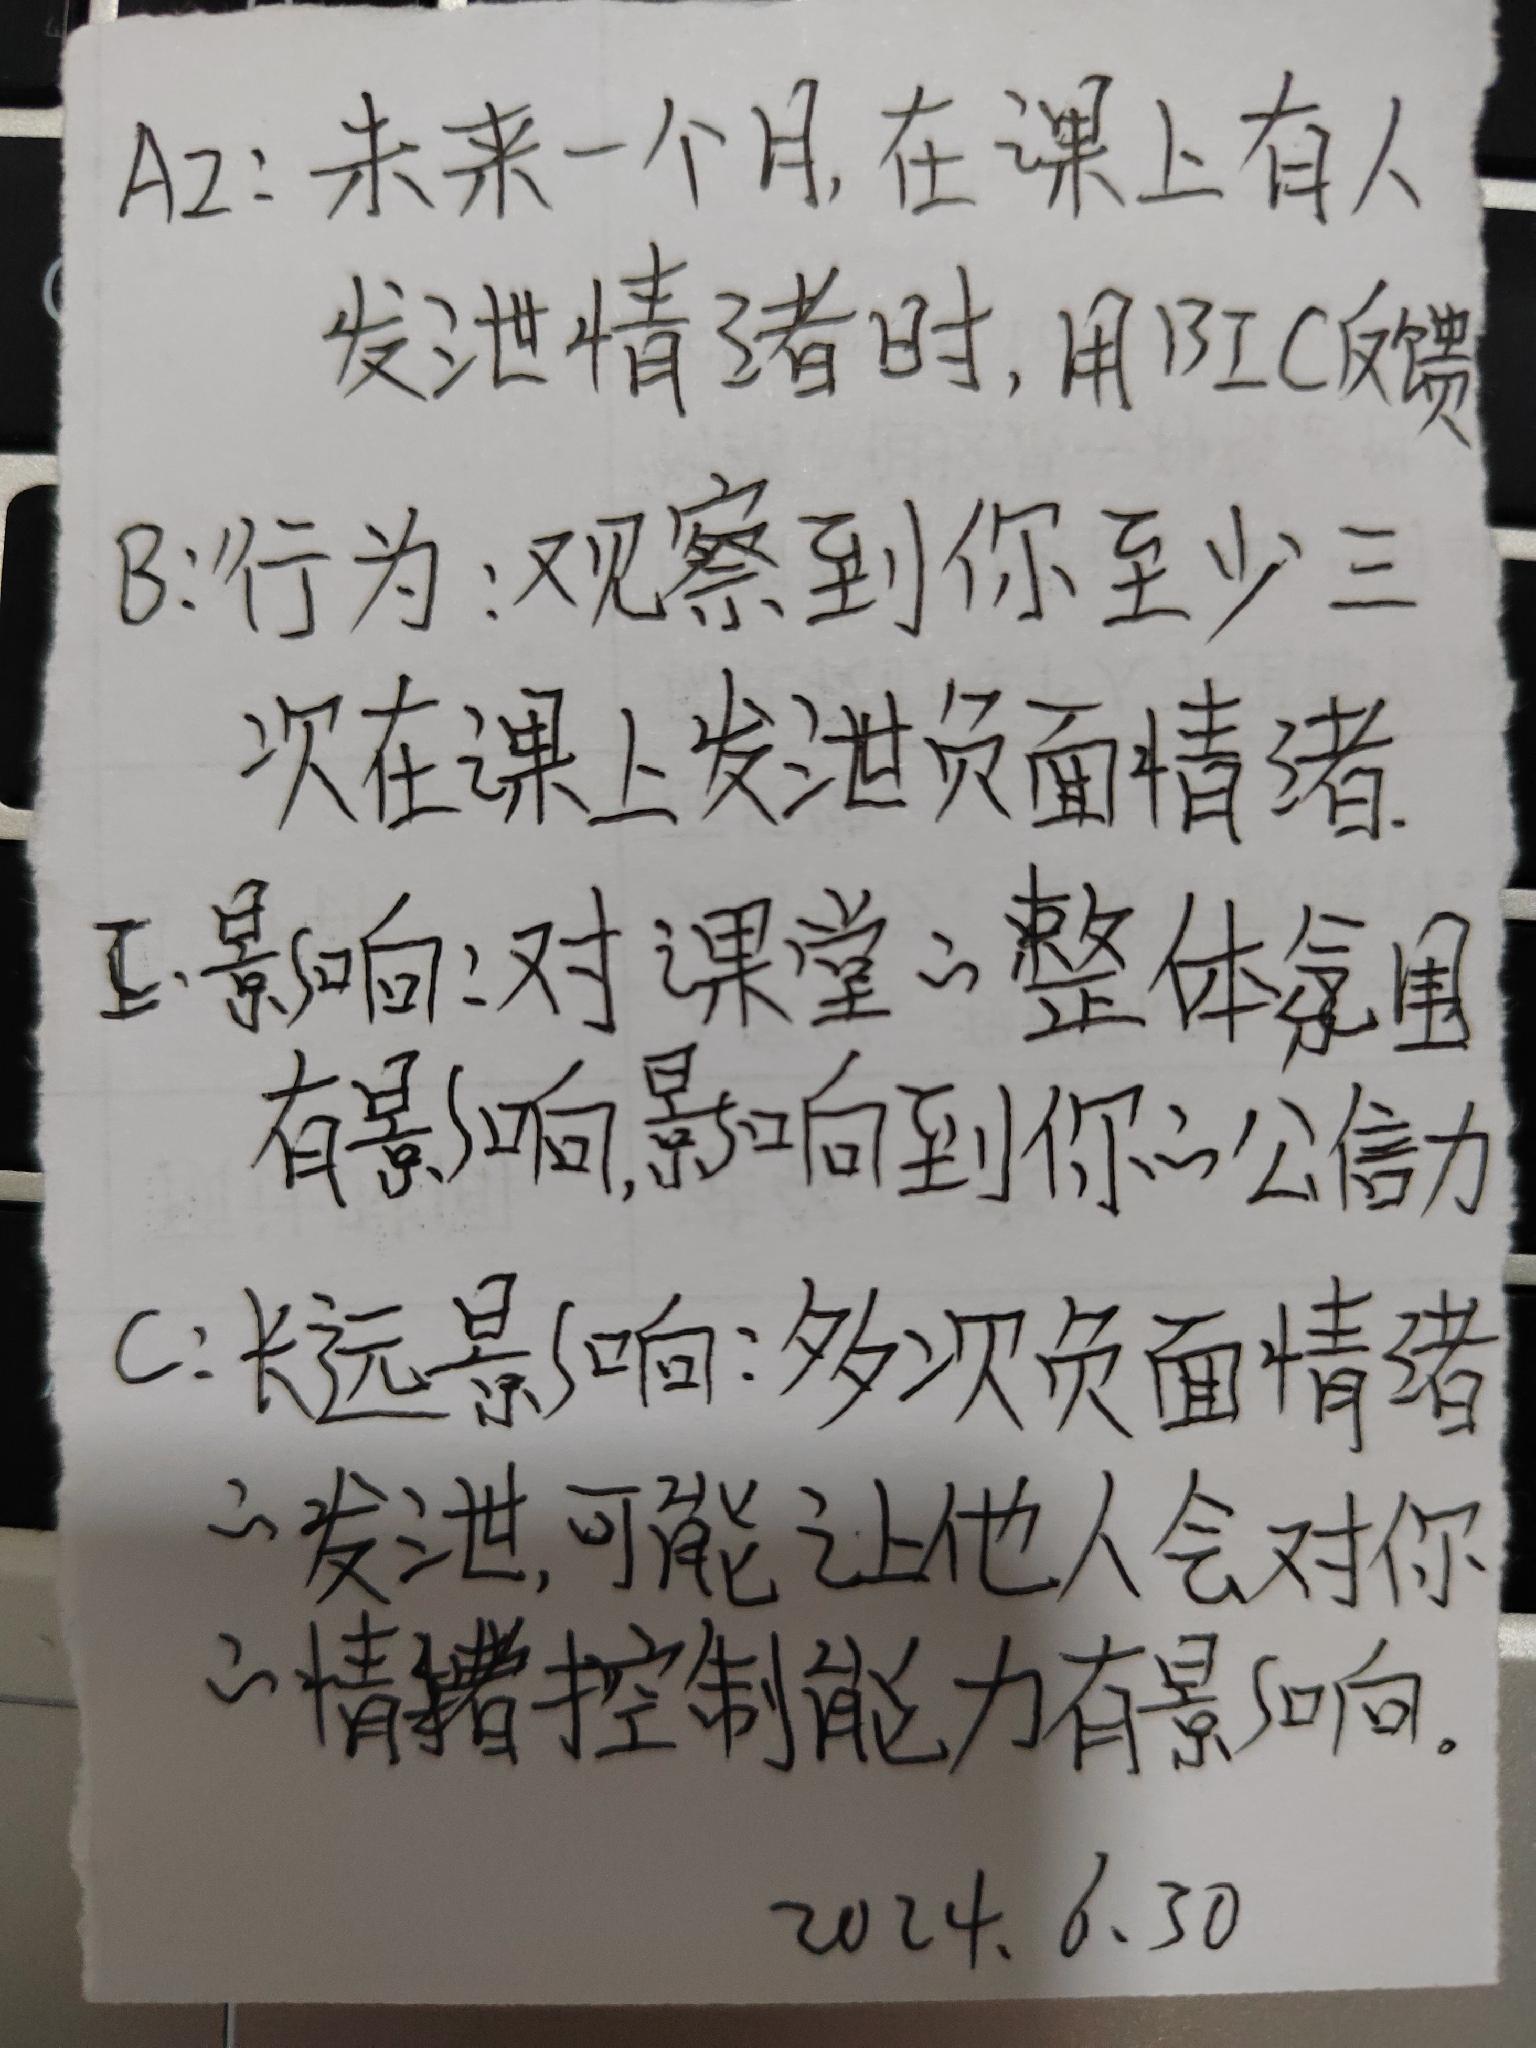 A2:未来一个月,在课上有人
发泄情绪时,用BIC反馈
B:行为:观察到你至少三
次在课上发泄负面情绪.
I.影响:对课堂的整体氛围
有影响,影响到你的公信力
C:长远影响:多次负面情绪
的发泄,可能让他人会对你
的情绪控制能力有影响。
2024.6.30